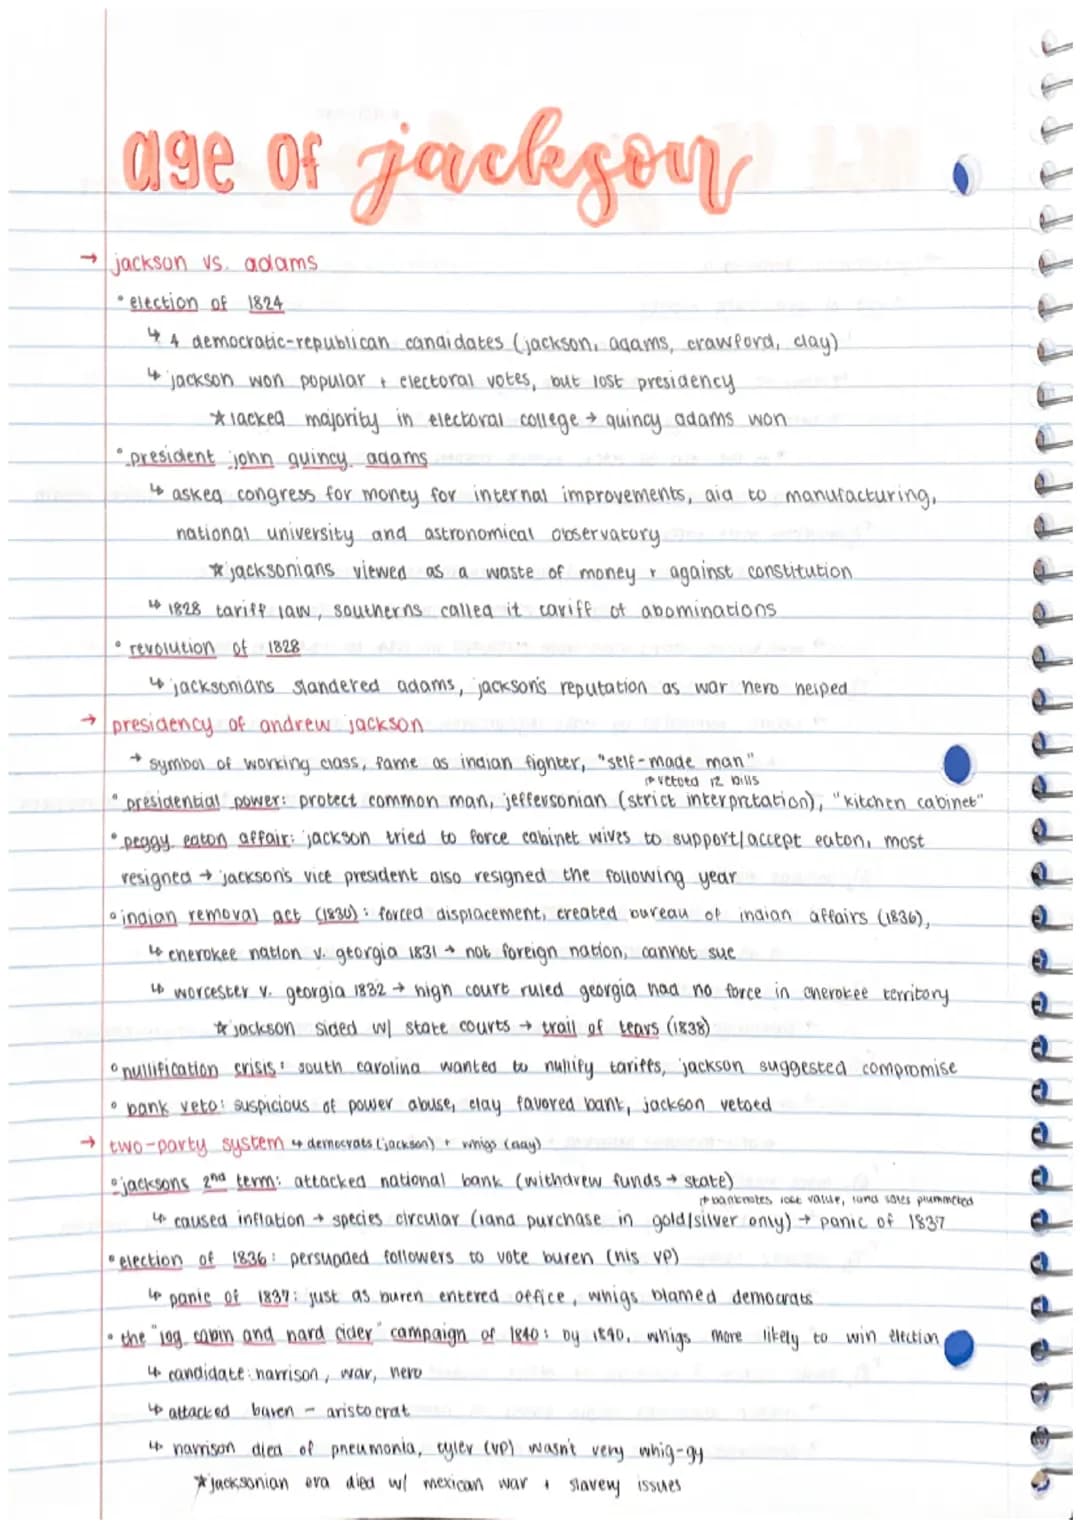 age of jackson
→ jackson vs. adams
• election of 1824
↳ 4 democratic-republican candidates (jackson, adams, crawford, clay)
↳ jackson won popular + electoral votes, but lost presidency
★ lacked majority in electoral college → quincy adams won
• president john quincy adams
↳ asked congress for money for internal improvements, aid to manufacturing,
national university and astronomical observatory
★ jacksonians viewed as a waste of money + against constitution
↳ 1828 tariff law, southerns called it tariff of abominations
• revolution of 1828
↳ jacksonians slandered adams, jackson's reputation as war hero helped
→ presidency of andrew jackson
→ symbol of working class, fame as indian fighter, "self-made man"
↱ vetoed 12 bills
• presidential power: protect common man, jeffersonian (strict interpretation), "kitchen cabinet"
• peggy eaton affair: jackson tried to force cabinet wives to support/accept eaton, most
resigned → jackson's vice president also resigned the following year
• indian removal act (1830): forced displacement, created bureau of indian affairs (1836),
↳ cherokee nation v. georgia 1831 → not foreign nation, cannot sue
↳ worcester v. georgia 1832 → high court ruled georgia had no force in cherokee territory
★ jackson sided w/ state courts → trail of tears (1838)
• nullification crisis: south carolina wanted to nullify tariffs, jackson suggested compromise
• bank veto: suspicious of power abuse, clay favored bank, jackson vetoed
→ two-party system ↳ democrats (jackson) + whigs (clay)
• jacksons 2nd term: attacked national bank (withdrew funds → state)
↱ banknotes lose value, land sales plummeted
↳ caused inflation → species circular (land purchase in gold/silver only) → panic of 1837
• election of 1836: persuaded followers to vote buren (his VP)
↳ panic of 1837: just as buren entered office, whigs blamed democrats
• the "log cabin and hard cider" campaign of 1840: by 1840, whigs more likely to win election
↳ candidate: harrison, war, hero
↳ attacked buren - aristocrat
↳ harrison died of pneumonia, tyler (VP) wasn't very whig-gy
★ jacksonian era died w/ mexican war + slavery issues